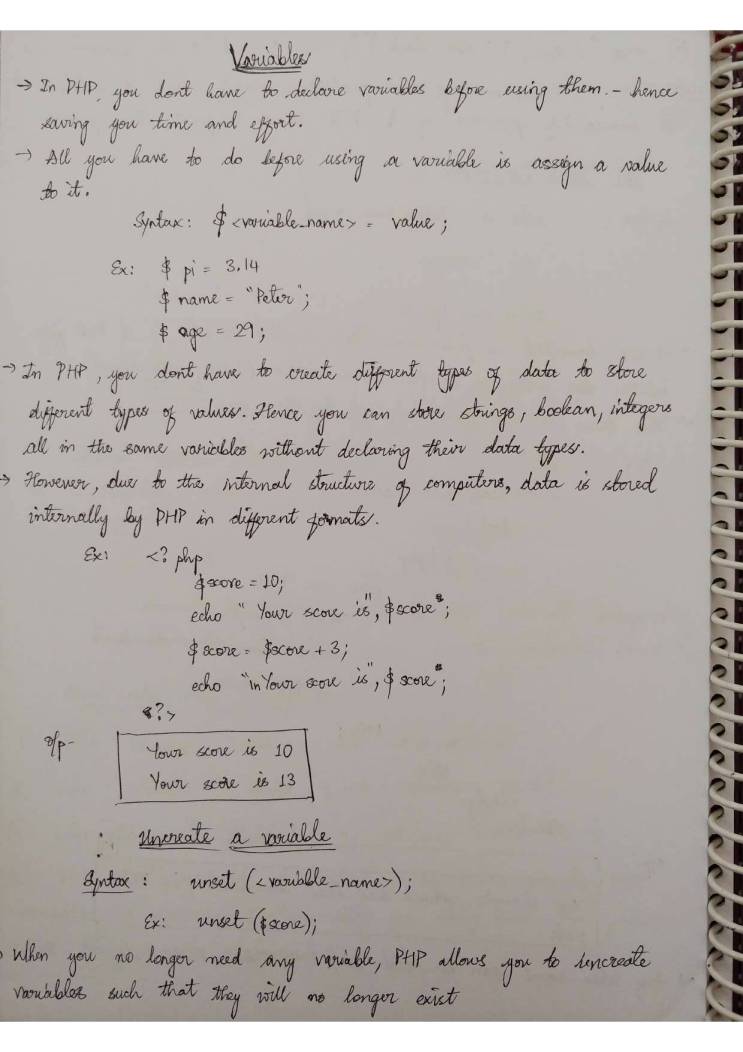 Variables
→ In PHP, you dont have to declare variables before using them. - hence
saving you time and effort.
→ All you have to do before using a variable is assign a value
to it.
Syntax: $ <variable_name> = value ;
Ex: $ pi = 3.14
$ name = "Peter";
$ age = 29;
→ In PHP, you dont have to create different types of data to store
different types of values. Hence you can store strings, boolean, integers
all in the same variables without declaring their data types.
→ However, due to the internal structure of computers, data is stored
internally by PHP in different formats.
Ex: <? php
$score = 10;
echo " Your score is", $score";
$ score = $score + 3;
echo "\n Your score is", $ score";
?>
o/p-
Your score is 10
Your score is 13
Uncreate a variable
Syntax : unset (<variable_name>);
Ex: unset ($score);
When you no longer need any variable, PHP allows you to uncreate
variables such that they will no longer exist